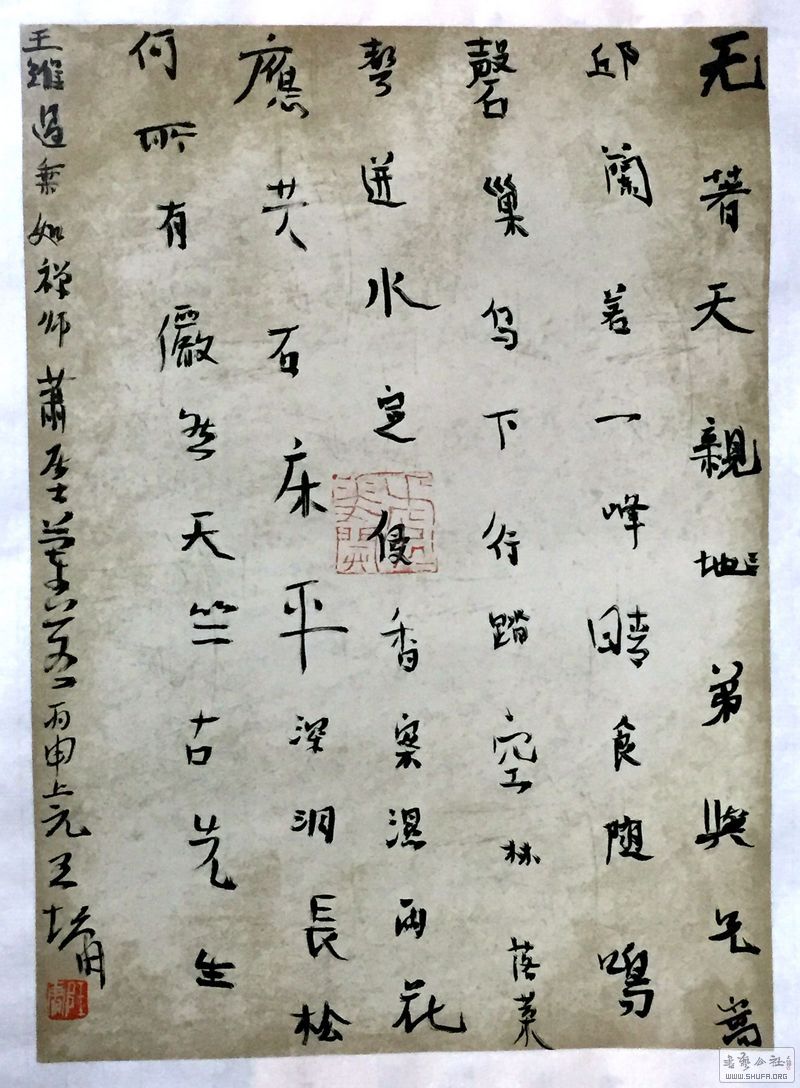 无著天親地弟與兄嵩
邱蘭若一峰晴食随鳴
磬巢烏下行踏空林落葉
聲迸水定侵香案濕雨花
應共石床平深洞長松
何所有儼然天竺古先生
王維過乘如禅师蕭居士嵩丘蘭若丙申上元王墉
书艺公社
WWW.SHUFA.ORG